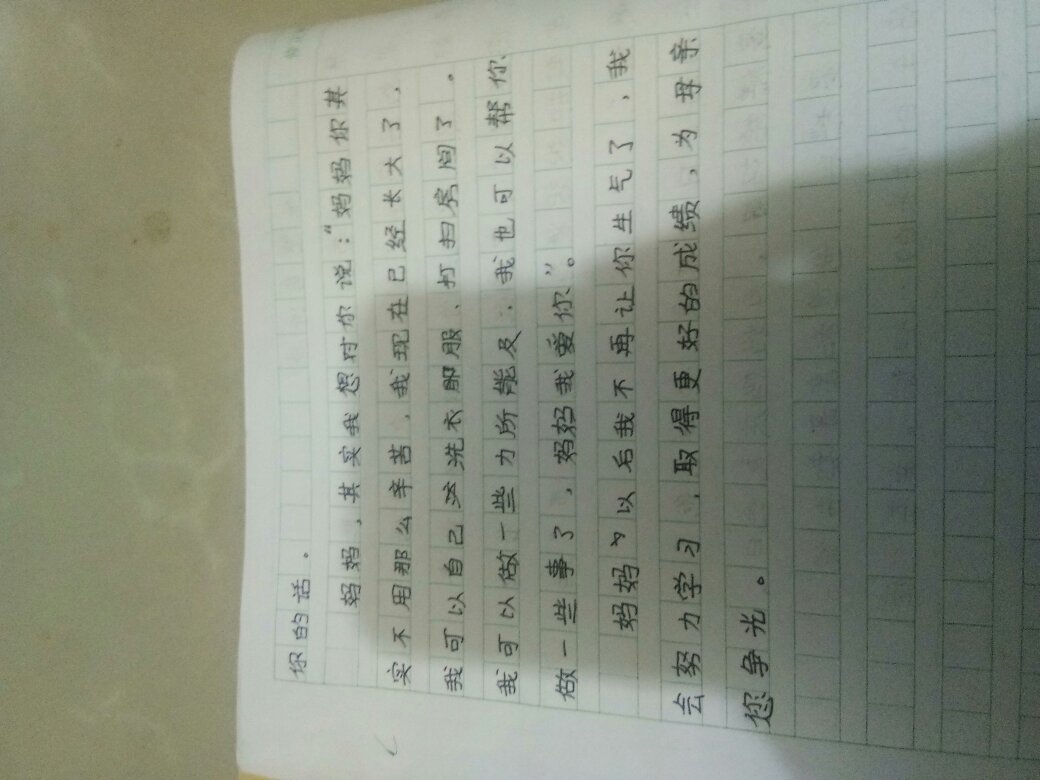 你的话。
妈妈，其实我想对你说：“妈妈你其
实不用那么辛苦，我现在已经长大了，
我可以自己洗衣服、打扫房间了。
我可以做一些力所能及，我也可以帮你
做一些事了，妈妈我爱你”。
妈妈以后我不再让你生气了，我
会努力学习，取得更好的成绩，为母亲
您争光。